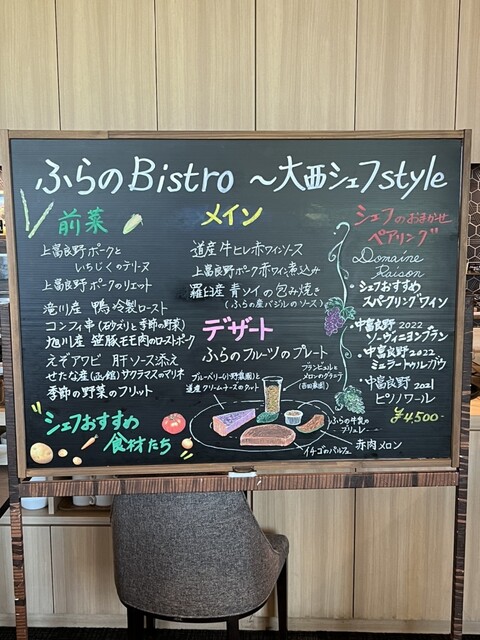 ふらのBistro ～大西シェフstyle
前菜
上富良野ポークと
いちじくのテリーヌ
上富良野ポークのリエット
滝川産 鴨 冷製ロースト
コンフィ串(砂ずりと季節の野菜)
旭川産 笹豚モモ肉のローストポーク
えぞアワビ 肝ソース添え
せたな産(函館)サクラマスのマリネ
季節の野菜のフリット
シェフおすすめ
食材たち
メイン
道産牛ヒレ赤ワインソース
上富良野ポーク赤ワイン煮込み
羅臼産 青ソイの包み焼き
(ふらの産バジルのソース)
デザート
ふらのフルーツのプレート
ブルーベリー(小野農園)と
道産クリームチーズのタルト
フランボワーズと
メロンのグラニテ
ふらの牛乳の
ブリュレ
イチゴのパルフェ
赤肉メロン
シェフのおまかせ
ペアリング
Domaine
Raison
・シェフおすすめ
スパークリングワイン
・中富良野 2022
ソーヴィニヨンブラン
・中富良野 2022
ミュラートゥルガウ
・中富良野 2021
ピノノワール
¥4,500-